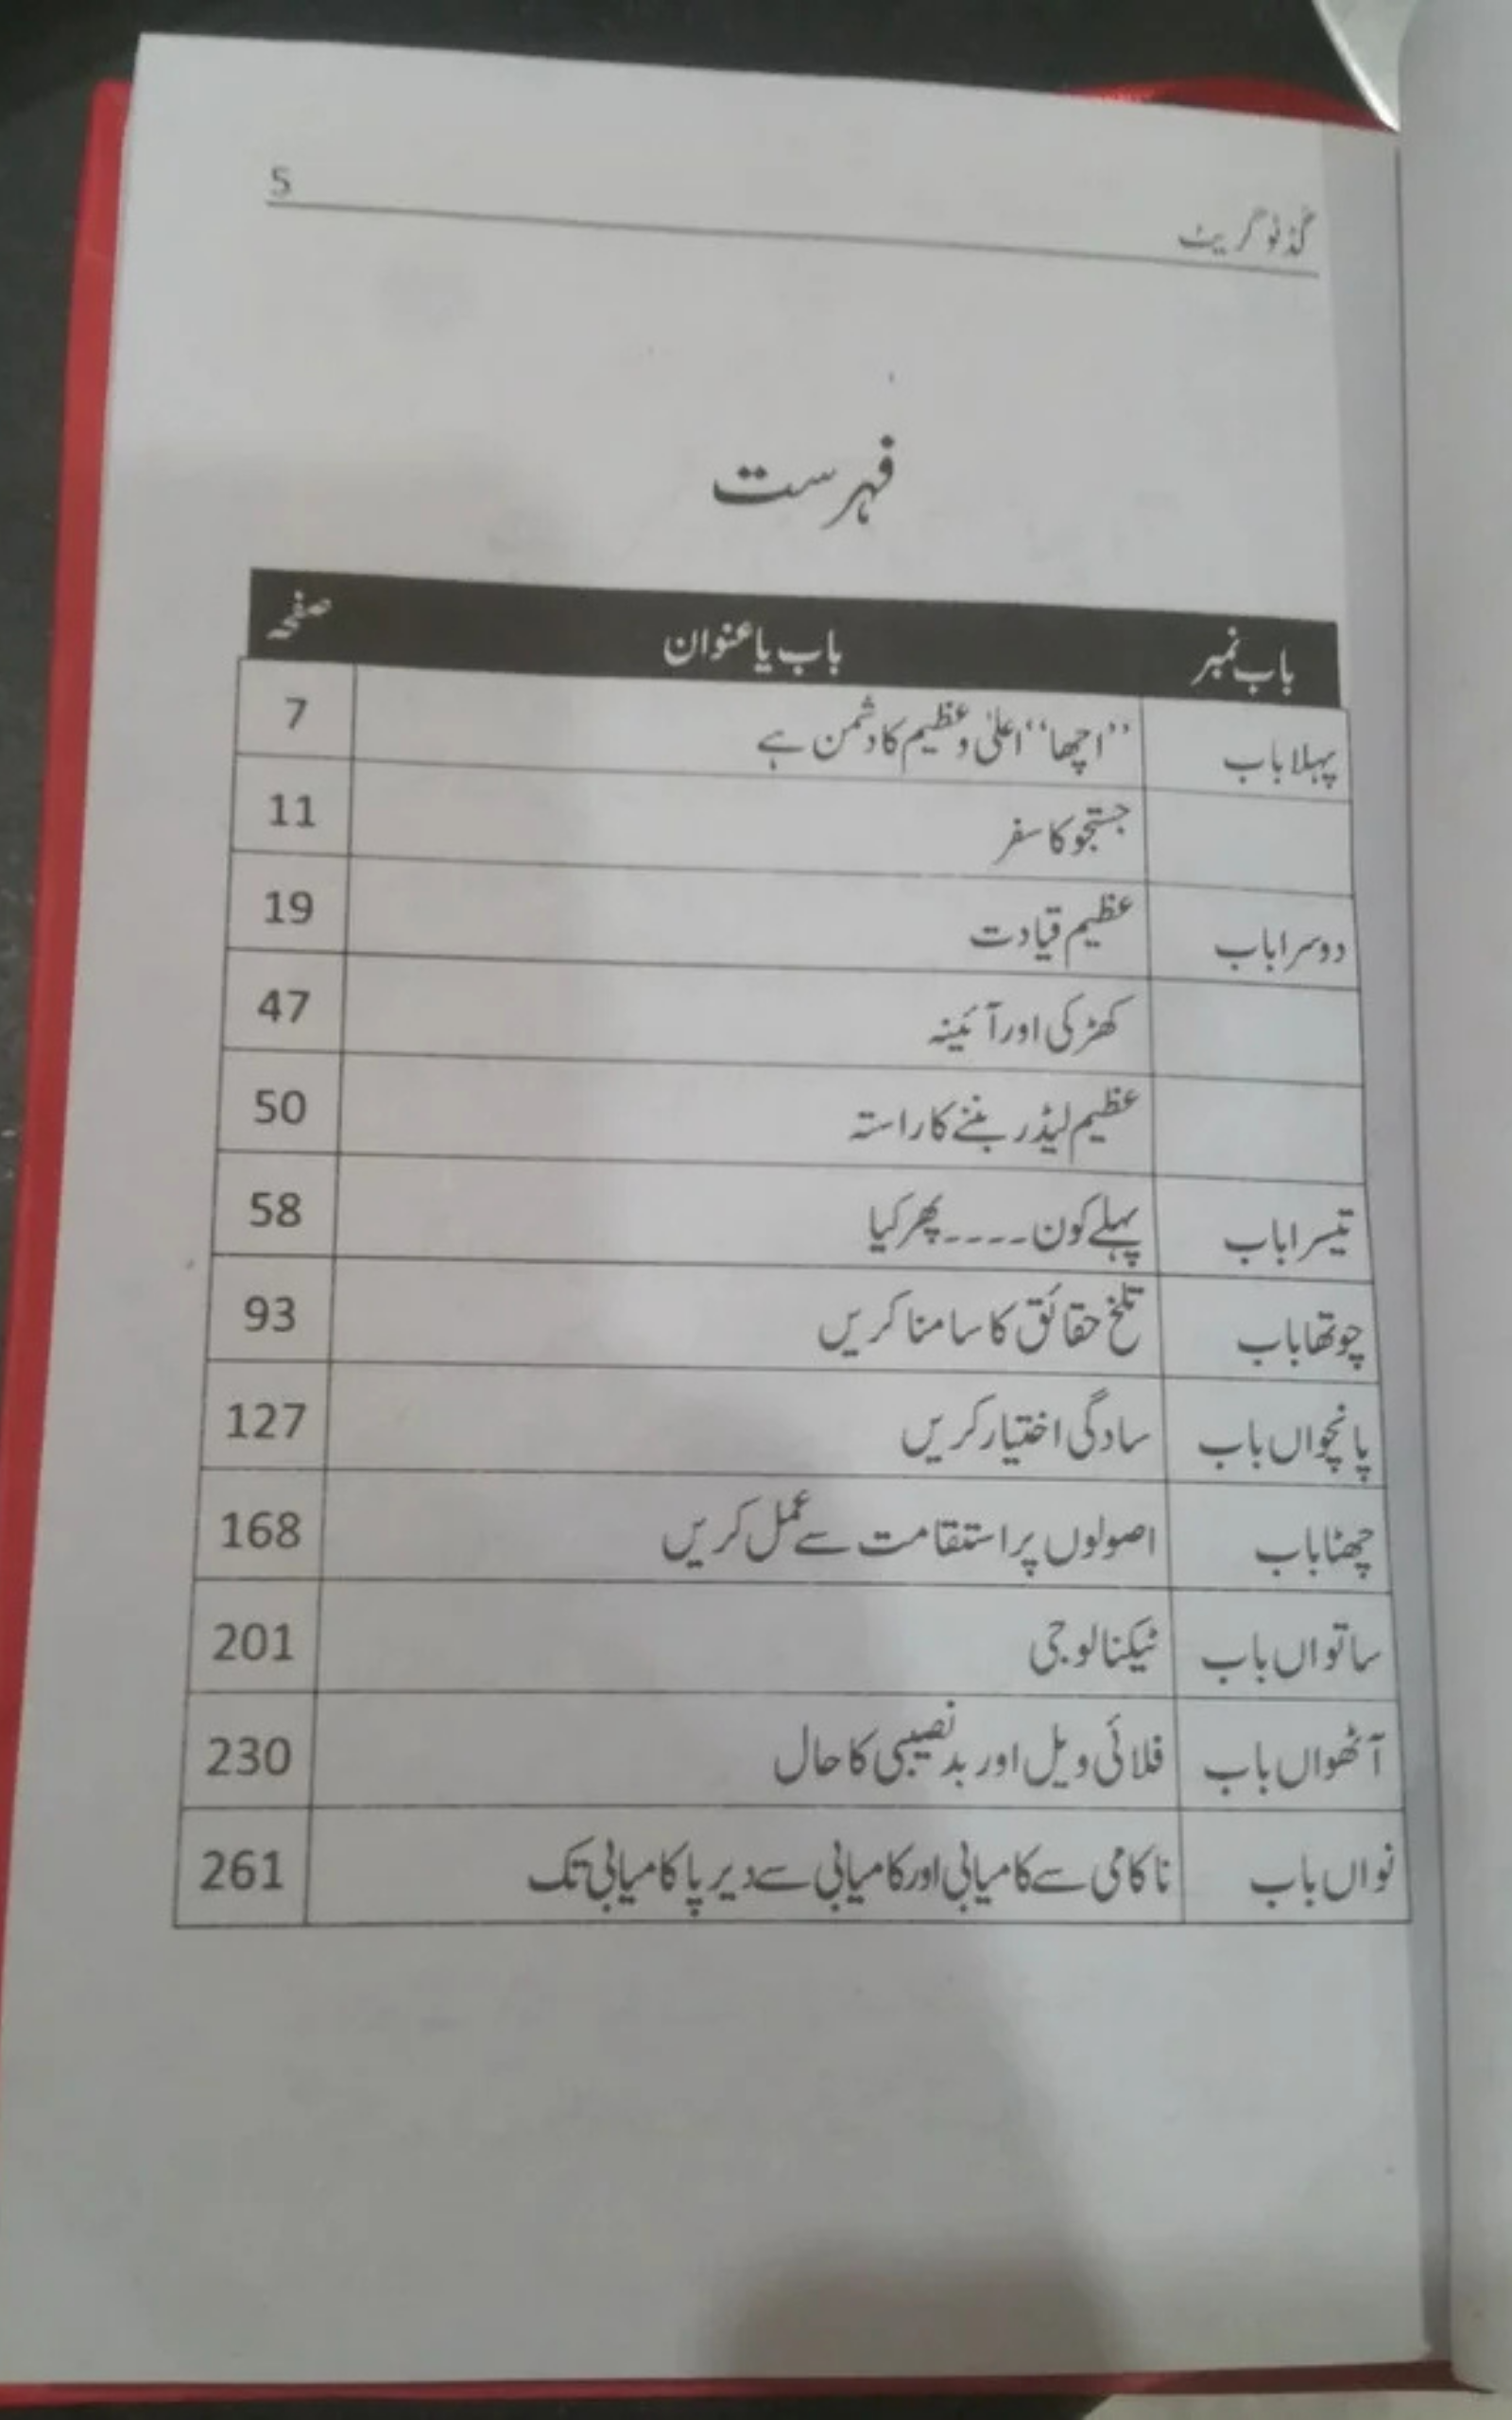 گڈ ٹو گریٹ 5
فہرست
باب نمبر باب یا عنوان صفحہ
پہلا باب ’’اچھا‘‘ اعلیٰ و عظیم کا دشمن ہے 7
جستجو کا سفر 11
دوسرا باب عظیم قیادت 19
کھڑکی اور آئینہ 47
عظیم لیڈر بننے کا راستہ 50
تیسرا باب پہلے کون ---- پھر کیا 58
چوتھا باب تلخ حقائق کا سامنا کریں 93
پانچواں باب سادگی اختیار کریں 127
چھٹا باب اصولوں پر استقامت سے عمل کریں 168
ساتواں باب ٹیکنالوجی 201
آٹھواں باب فلائی ویل اور بدنصیبی کا حال 230
نواں باب ناکامی سے کامیابی اور کامیابی سے دیرپا کامیابی تک 261